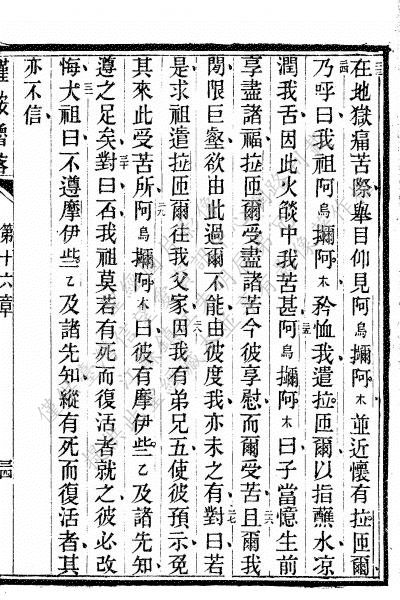 在地獄痛苦際舉目仰見阿烏攠阿木並近懷有拉匝爾
乃呼曰我祖阿烏攠阿木矜恤我遣拉匝爾以指蘸水凉
潤我舌因此火燄中我苦甚阿烏攠阿木曰子當憶生前
享盡諸福拉匝爾受盡諸苦今彼享慰而爾受苦且爾我
間限巨壑欲由此過爾不能由彼度我亦未之有對曰若
是求祖遣拉匝爾往我父家因我有弟兄五使彼預示免
其來此受苦所阿烏攠阿木曰彼有摩伊些乙及諸先知
遵之足矣對曰否我祖莫若有死而復活者就之彼必改
悔大祖曰不遵摩伊些乙及諸先知縱有死而復活者其
亦不信
第十六章
三四